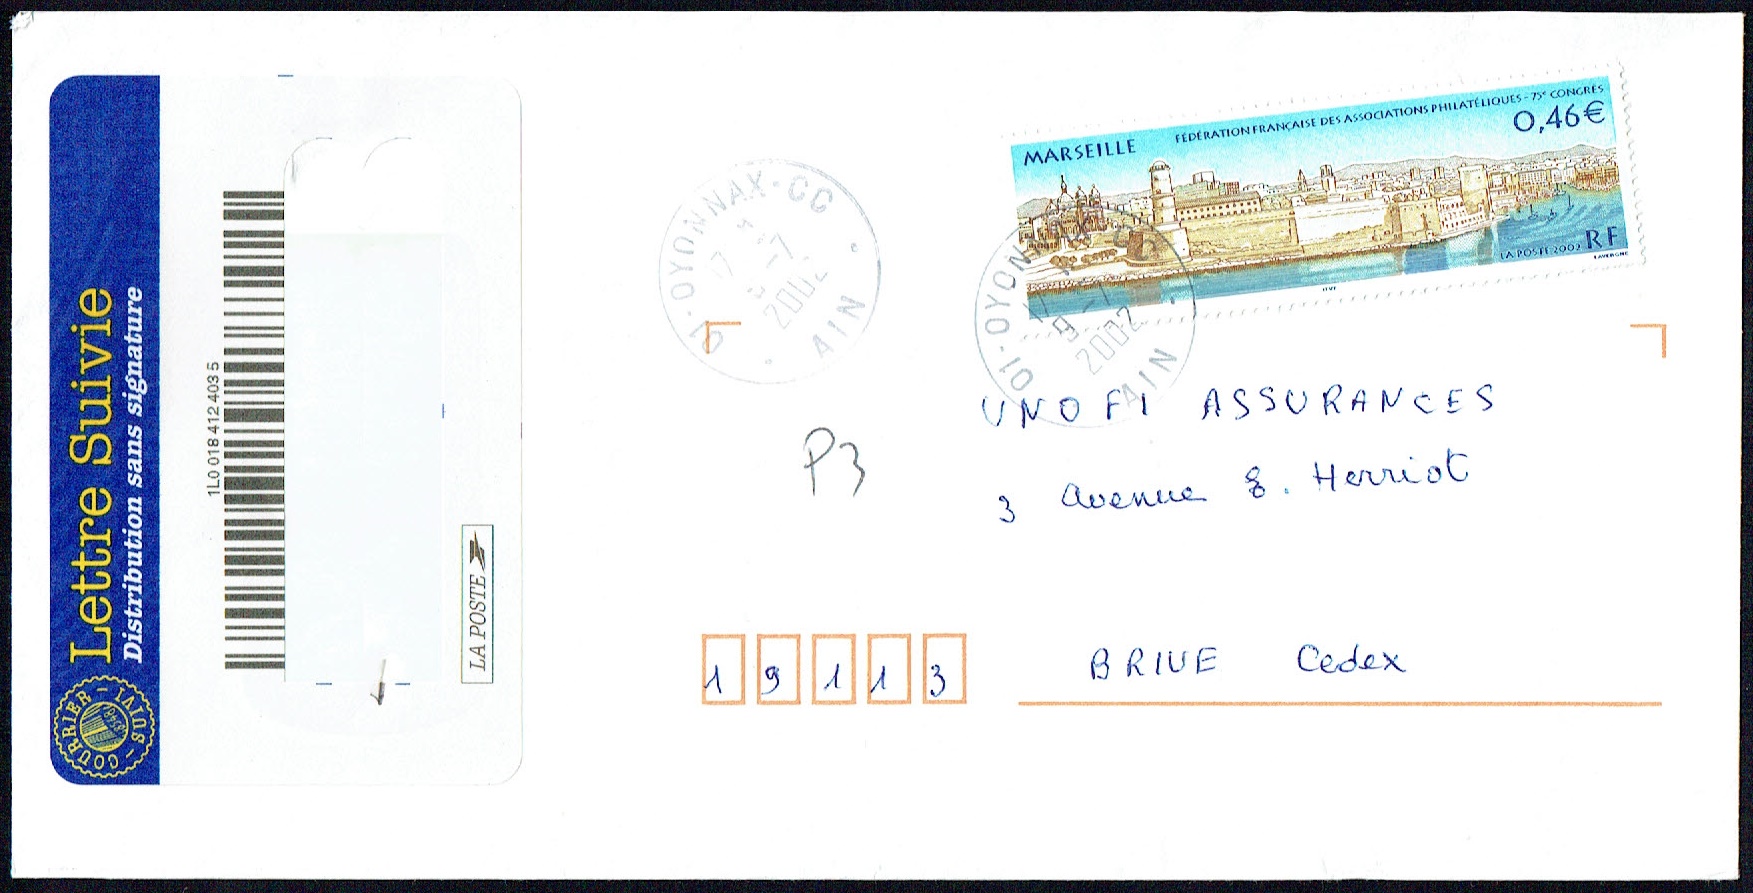 Lettre Suivie
Distribution sans signature
COURRIER - SUIVI -
1L0 018 412 4035
LA POSTE
01-OYONNAX-CC
17
9-7
2002
AIN
MARSEILLE
FÉDÉRATION FRANÇAISE DES ASSOCIATIONS PHILATÉLIQUES - 75e CONGRÈS
0,46€
LA POSTE 2002 RF
LAVERGNE
ITVF
01-OYONN
17
9-7
2002
AIN
P3
UNOFI ASSURANCES
3 avenue E. Herriot
19113 BRIVE Cedex